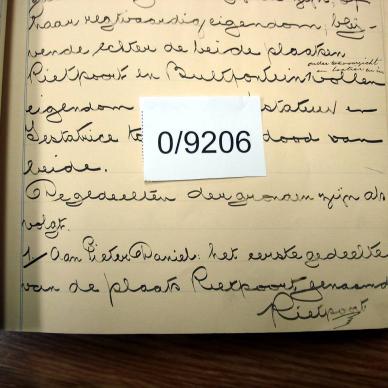 haar regtvaardig eigendom, blij-
vende echter de beide plaatsen
Rietpoort en Bultfonteinhollen
eigendom statuur en
Testatrice to dood van
beide.
0/9206
De gedeelten der gronden zijn als
volgt.
1/ Aan Pieter Daniel: het eerste gedeelte
van de plaats Rietpoort, genaamd
Rietpoort